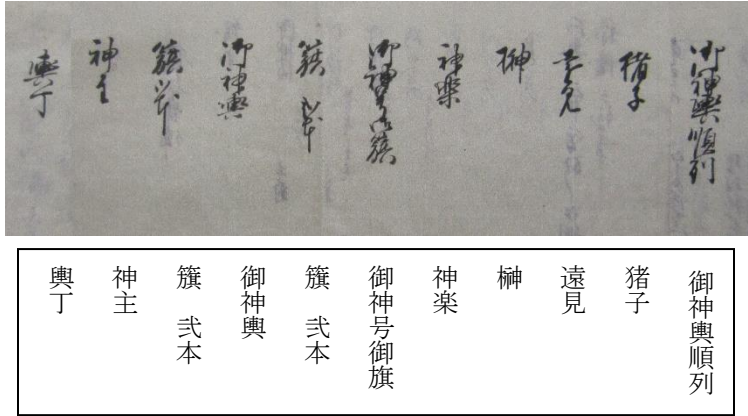 御神輿順列
猪子
遠見
榊
神楽
御神号御旗
籏 弐本
御神輿
籏 弐本
神主
輿丁
御神輿順列
猪子
遠見
榊
神楽
御神号御旗
籏 弐本
御神輿
籏 弐本
神主
輿丁